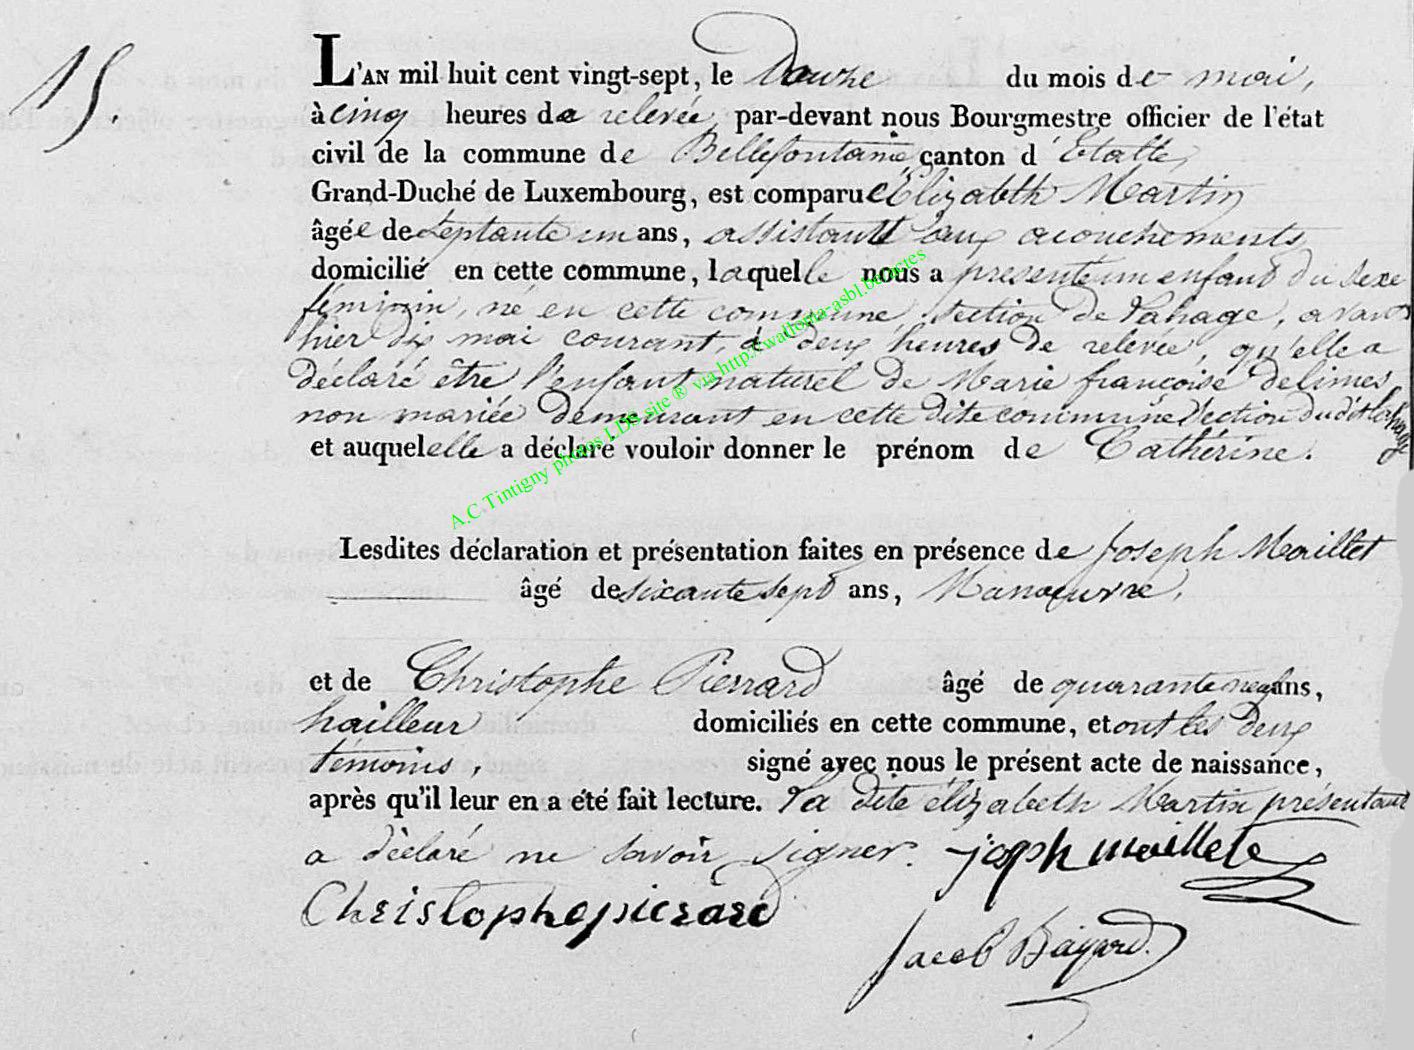 15.
L'AN mil huit cent vingt-sept, le douze du mois de mai,
à cinq heures de relevée par-devant nous Bourgmestre officier de l'état
civil de la commune de Bellefontaine canton d'Etalle,
Grand-Duché de Luxembourg, est comparue Elizabeth Martin
âgée de septante un ans, assistante aux acouchements
domicilié en cette commune, laquelle nous a presenté un enfant du sexe
féminin, né en cette commune, section de Lahage, avant
hier dix mai courant, à deux heures de relevée, qu'elle a
déclaré être l'enfant naturel de Marie françoise delimes
non mariée demeurant en cette dite commune section dudit Lahage
et auquel elle a déclaré vouloir donner le prénom de Cathérine.
Lesdites déclaration et présentation faites en présence de Joseph Maillet
âgé de sixante sept ans, Manoeuvre,
et de Christophe Pierrard âgé de quarante neuf ans,
hailleur domiciliés en cette commune, et ont les deux
témoins, signé avec nous le présent acte de naissance,
après qu'il leur en a été fait lecture. la dite élizabeth Martin présentant
a déclaré ne savoir signer. joseph maillete
Christophe pierard
Jacob Bayard.
A.C.Tintigny photos LDS site ® via http://wallonia-asbl.be/actes